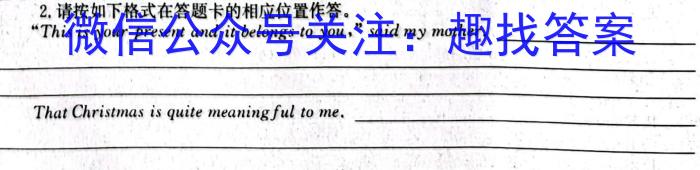 2.请按如下格式在答题卡的相应位置作答。
“This is your present and it belongs to you,” said my mother.
微信公众号关注：趣找答案
That Christmas is quite meaningful to me.